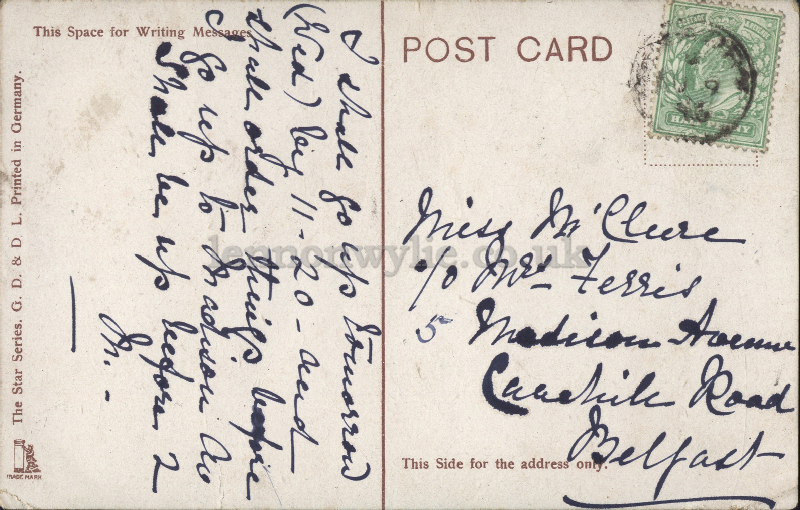 This Space for Writing Messages
POST CARD
The Star Series. G. D. & D. L. Printed in Germany.
TRADE MARK
I shall go up tomorrow
(Wed) by 11-20 - and
shall order things before
I go up to Madison Av
Shall be up before 2
M. -
Miss M'Clure
c/o Mrs Ferris
5 Madison Avenue
Road
Belfast
This Side for the address only.
lennonwylie.co.uk